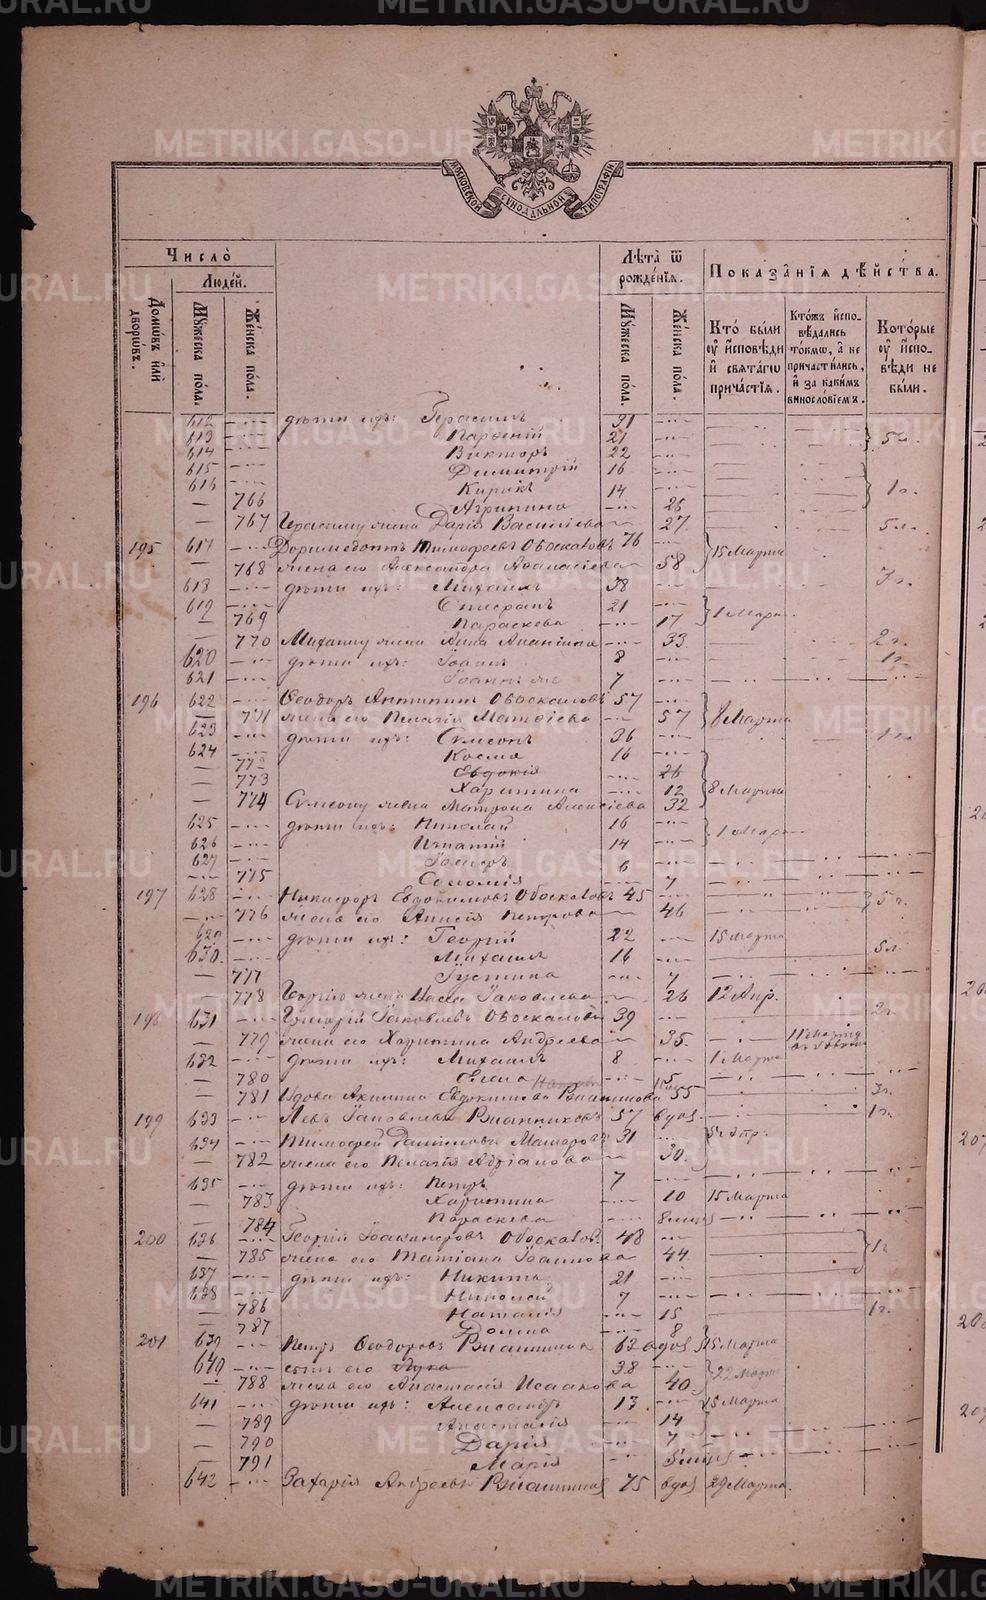 МОСКОВСКОЙ СѴНОДАЛЬНОЙ ТИПОГРАФІИ
Число̀
Людей.
Домѡвъ и҆лѝ дворѡвъ.
Мꙋжеска по́ла.
Же́нска по́ла.
Лѣ́та ѿ рожде́нїѧ.
Мꙋжеска по́ла.
Же́нска по́ла.
Показа́нїѧ дѣ́йства.
Кто̀ бы́ли ᲂу҆ и҆сповѣди и҆ свѧта́гѡ прича́стїѧ.
Кто́жъ и҆спо-вѣдались то́кмѡ, а҆ не причасти́лись, и҆ за каки́мъ винослові́емъ.
Кото́рые ᲂу҆ и҆спо-вѣди не бы́ли.
612 дѣти ихъ: Герасимъ 31
613 Парѳеній 21 5 л.
614 Викторъ 22
615 Димитрій 16
616 Кирикъ 14 1 г.
766 Агрипина 26
767 Герасиму жена Дарія Васильева 27 5 л.
195 617 Доримедонтъ Тимофеевъ Обоскаловъ 76 15 Марта
768 жена его Александра Аѳанасіева 58
618 дѣти ихъ: Михаилъ 38
619 21 1 Мар.
769 Параскева 17
770 Михаилу жена Анна Ананіина 33 2 г.
620 дѣти ихъ: Іоаннъ 8 1 г.
621 Іоаннъ 7
196 622 Ѳеодоръ Антипинъ Обоскаловъ 57 8 Марта
771 жена его Пелагія Матѳіева 57
623 дѣти ихъ: Сѵмеонъ 36
624 Косма 16
772 Евдокія 26
773 Харитина 12 8 Марта
774 Сѵмеону жена Матрона Алексіева 32
625 дѣти ихъ: Николай 16 1 Мар
626 Игнатій 14
627 6
775 Соломія 7
197 628 Никифоръ Евдокимовъ Обоскаловъ 45 5 л.
776 жена его Анисія Петрова 46
629 дѣти ихъ: Георгій 22 15 Марта
630. Михаилъ 16 5 л.
777 Іустина 7
778 Георгію жена Іаковлева 26 12 Апр.
198 631 Григорій Іаковлевъ Обоскаловъ 39 2 г.
779 жена его Харитина Андреева 35.
632 дѣти ихъ: Михаилъ 8 1 Марта
780 Елена 5
781 Вдова Акилина Евдокимова 55 3 г.
199 633 Левъ Іаковлевъ 57 вдов. 1 г.
634 Тимофей Даниловъ 31 5 Апр.
782 жена его Пелагія Адріанова 30.
635 дѣти ихъ: Петръ 7
783 Харитина 10 15 Марта
784 Параскева
200 636 Георгій Обоскаловъ 48 1 г
785 жена его Татіана Іоаннова 44.
637 дѣти ихъ: Никита 21
638 Николай 7
786 Наталія 15 1 г.
787 Домна 8
201 639 Петръ Ѳеодоровъ 62 вдов 15 Марта
640 сынъ его Лука 38 22 Марта
788 жена его Анастасія Исаакова 40.
641 дѣти ихъ: Александръ 13 15 Марта
789 Анастасія 14
790 Дарія 7
791 Марія
642 Захарія Андреевъ 75 вдов 29 Марта.